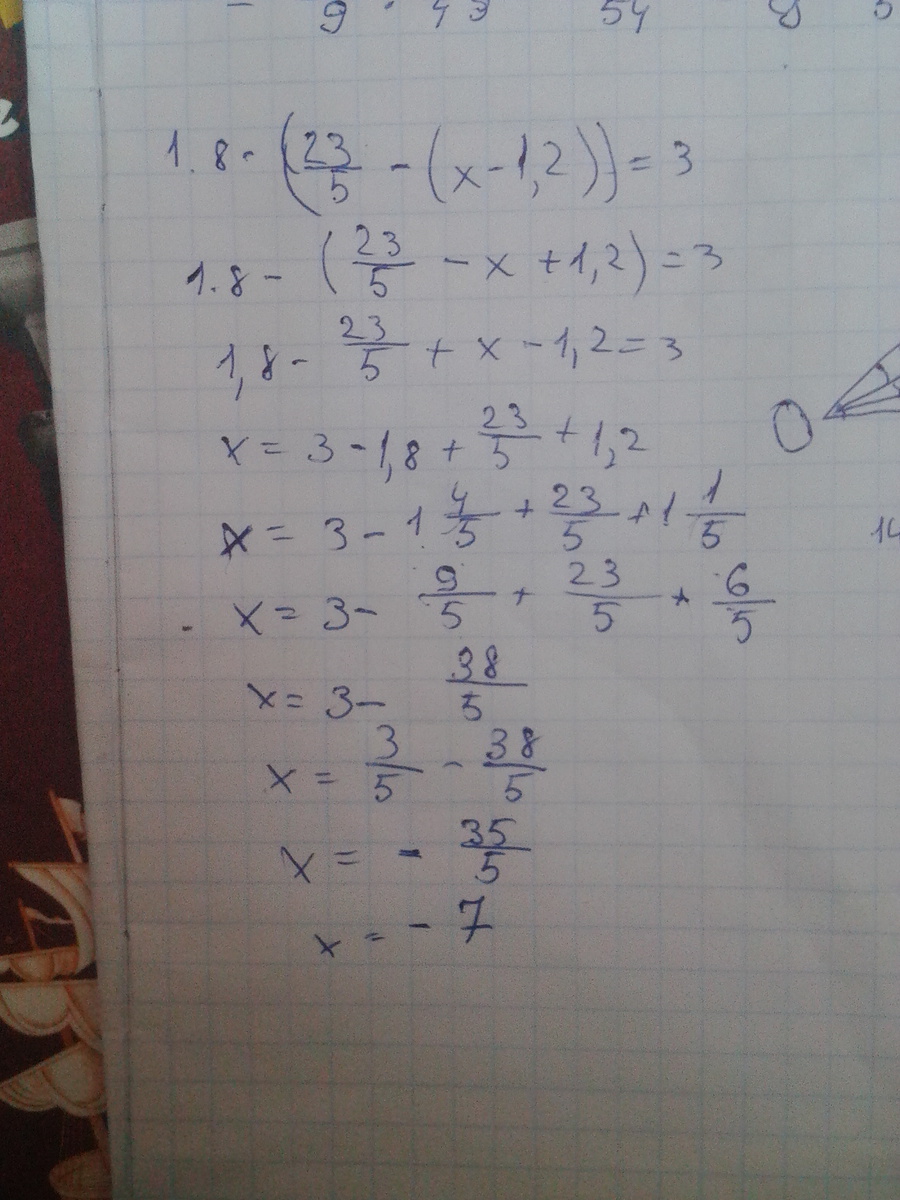 9 · 49 54 8
1.8 - (23/5 - (x - 1,2)) = 3
1.8 - (23/5 - x + 1,2) = 3
1,8 - 23/5 + x - 1,2 = 3
x = 3 - 1,8 + 23/5 + 1,2
O
x = 3 - 1 4/5 + 23/5 + 1 1/5
14
x = 3 - 9/5 + 23/5 + 6/5
x = 3 - 38/5
x = 3/5 - 38/5
x = - 35/5
x = - 7